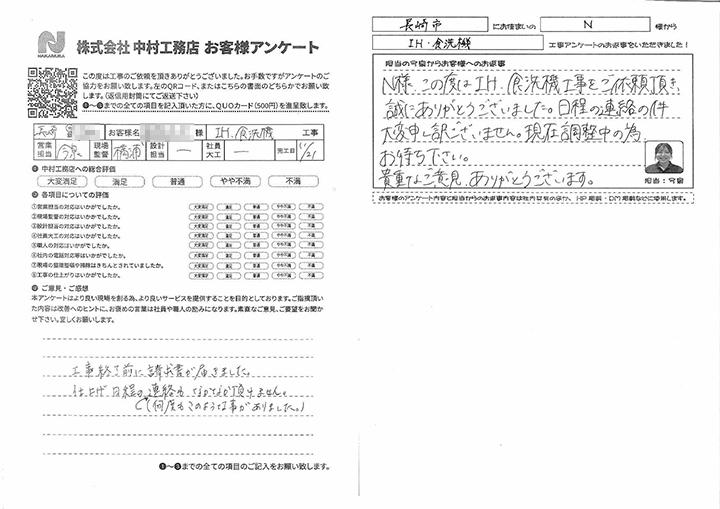 NAKAMURA
株式会社 中村工務店 お客様アンケート
この度は工事のご依頼を頂きありがとうございました。お手数ですがアンケートのご
協力をお願い致します。左のQRコード、またはこちらの書面のどちらかでお願い
致します。(返信用封筒にてご返送下さい)
❶〜❺までの全ての項目を記入頂いた方に、QUOカード(500円)を進呈致します。
長崎 お客様名 様 IH・食洗機 工事
営業担当 今泉 現場監督 橋浦 設計担当 ー 社員大工 ー 完工日 11/21
中村工務店への総合評価
大変満足 満足 普通 やや不満 不満
各項目についての評価
①営業担当の対応はいかがでしたか。 大変満足 満足 普通 やや不満 不満
②現場監督の対応はいかがでしたか。 大変満足 満足 普通 やや不満 不満
③設計担当の対応はいかがでしたか。 大変満足 満足 普通 やや不満 不満
④社員大工の対応はいかがでしたか。 大変満足 満足 普通 やや不満 不満
⑤職人の対応はいかがでしたか。 大変満足 満足 普通 やや不満 不満
⑥社内の電話対応等はいかがでしたか。 大変満足 満足 普通 やや不満 不満
⑦現場の整理整頓や掃除はきちんとされていましたか。 大変満足 満足 普通 やや不満 不満
⑧工事の仕上がりはいかがでしたか。 大変満足 満足 普通 やや不満 不満
ご意見・ご感想
本アンケートはより良い現場を創る為、より良いサービスを提供することを目的としております。ご指摘頂い
た内容は改善へのヒントに、お褒めの言葉は社員や職人の励みになります。素直なご意見、ご要望をお聞か
せ下さい。宜しくお願いします。
工事終了前に請求書が届きました。
仕上げ日程の連絡もなかなか頂けません。
(何度もこのような事がありました。)
❶〜❺までの全ての項目のご記入をお願い致します。
長崎市 にお住まいの N 様から
IH・食洗機 工事アンケートのお返事をいただきました!
担当の今泉からお客様へのお返事
N様 この度はIH、食洗機工事をご依頼頂き、
誠にありがとうございました。日程の連絡の件
大変申し訳ございません。現在調整中の為
お待ち下さい。
貴重なご意見、ありがとうございます。
担当:今泉
お客様のアンケート内容と担当からのお返事内容は社内共有のほか、HP掲載・DM掲載などに使用します。